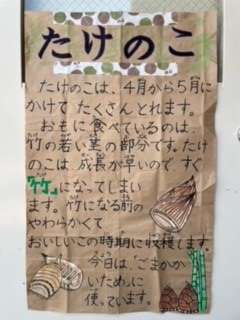 たけのこ
たけのこは、4月から5月に
かけて たくさん とれます。
おもに 食べているのは、
竹の若い茎の部分です。たけ
のこは 成長が早いので すぐ
「竹」になってしまい
ます。竹になる前の
やわらかくて
おいしいこの時期に収穫します。
今日は、「ごまかか
いため」に
使っています。